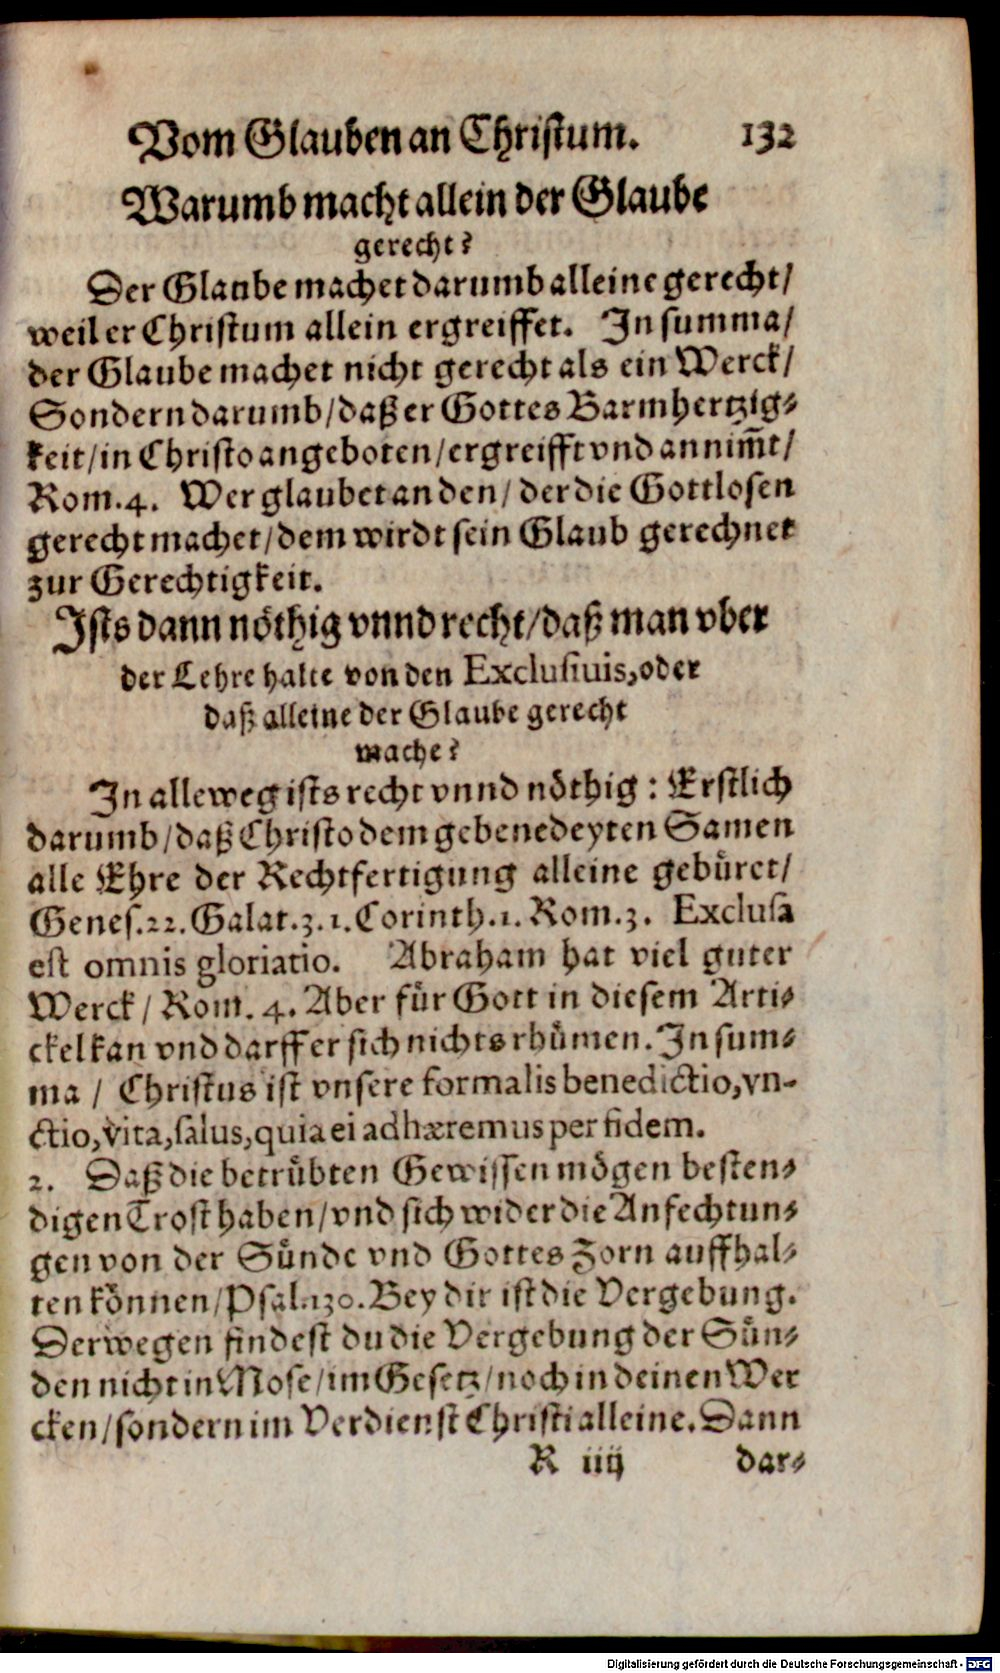 Vom Glauben an Christum. 132
Warumb macht allein der Glaube
gerecht?
Der Glaube machet darumb alleine gerecht/
weil er Christum allein ergreiffet. In summa/
der Glaube machet nicht gerecht als ein Werck/
Sondern darumb/daß er Gottes Barmhertzig-
keit/in Christo angeboten/ergreifft vnd annim̃t/
Rom.4. Wer glaubet an den/ der die Gottlosen
gerecht machet/dem wirdt sein Glaub gerechnet
zur Gerechtigkeit.
Ists dann nöthig vnnd recht/daß man vber
der Lehre halte von den Exclusiuis, oder
daß alleine der Glaube gerecht
mache?
In alleweg ists recht vnnd nöthig: Erstlich
darumb/daß Christo dem gebenedeyten Samen
alle Ehre der Rechtfertigung alleine gebüret/
Genes.22. Galat.3. 1.Corinth.1. Rom.3. Exclusa
est omnis gloriatio. Abraham hat viel guter
Werck/ Rom. 4. Aber für Gott in diesem Arti-
ckel kan vnd darff er sich nichts rhümen. In sum-
ma / Christus ist vnsere formalis benedictio, vn-
ctio, vita, salus, quia ei adhæremus per fidem.
2. Daß die betrübten Gewissen mögen besten-
digen Trost haben/vnd sich wider die Anfechtun-
gen von der Sünde vnd Gottes Zorn auffhal-
ten können/Psal.130. Bey dir ist die Vergebung.
Derwegen findest du die Vergebung der Sün-
den nicht in Mose/im Gesetz/noch in deinen Wer
cken/sondern im Verdienst Christi alleine. Dann
R iiij dar-
Digitalisierung gefördert durch die Deutsche Forschungsgemeinschaft - DFG